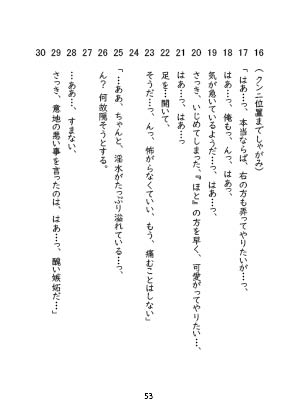 16 (クンニ位置までしゃがみ)
17 「はぁ…っ、本当ならば、右の方も弄ってやりたいが…っ、
18 はぁ…っ、俺もっ、んっ、はぁっ、
19 気が急いているようだ…っ、はぁ…っ、
20 さっき、いじめてしまった、『ほと』の方を早く、可愛がってやりたい…、
21 はぁ…っ、はぁ…っ
22 足を…開いて、
23 そうだ…っ、んっ、怖がらなくていい、もう、痛むことはしない」
24
25 「…ああ、ちゃんと、淫水がたっぷり溢れている…っ、
26 ん?何故隠そうとする。
27
28 …ああ…、すまない、
29 さっき、意地の悪い事を言ったのは、はぁ…っ、醜い嫉妬だ…」
30
53